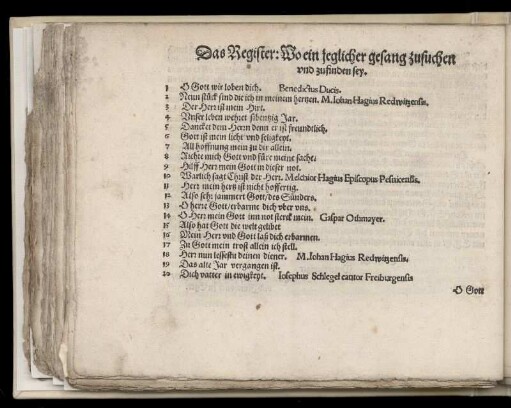 Das Register: Wo ein jeglicher gesang zusuchen
vnd zufinden sey.
1 O Gott wir loben dich. Benedictus Ducis.
2 Neun stück sind die ich in meinem hertzen. M. Iohan Hagius Redwitzensis.
3 Der Herr ist mein Hirt.
4 Vnser leben wehret sibentzig Jar.
5 Dancket dem Herrn denn er ist freundtlich.
6 Gott ist mein liecht vnd seligkeyt.
7 All hoffnung mein zu dir allein.
8 Richte mich Gott vnd füre meine sache.
9 Hilff Herr mein Gott in dieser not.
10 Warlich sagt Christ der Herr. Melchior Hagius Episcopus Pesnicensis.
11 Herr mein hertz ist nicht hoffertig.
12 Also sehr jammert Gott/des Sünders.
13 O herre Gott/erbarme dich vber vns.
14 O Herr mein Gott inn not sterck mein. Gaspar Othmayer.
15 Also hat Gott die welt geliebt
16 Mein Herr vnd Gott laß dich erbarmen.
17 Zu Gott mein trost allein ich stell.
18 Herr nun lessestu deinen diener. M. Iohan Hagius Redwitzensis.
19 Das alte Jar vergangen ist.
20 Dich vatter in ewigkeyt. Iosephus Schlegel cantor Freiburgensis
O Gott